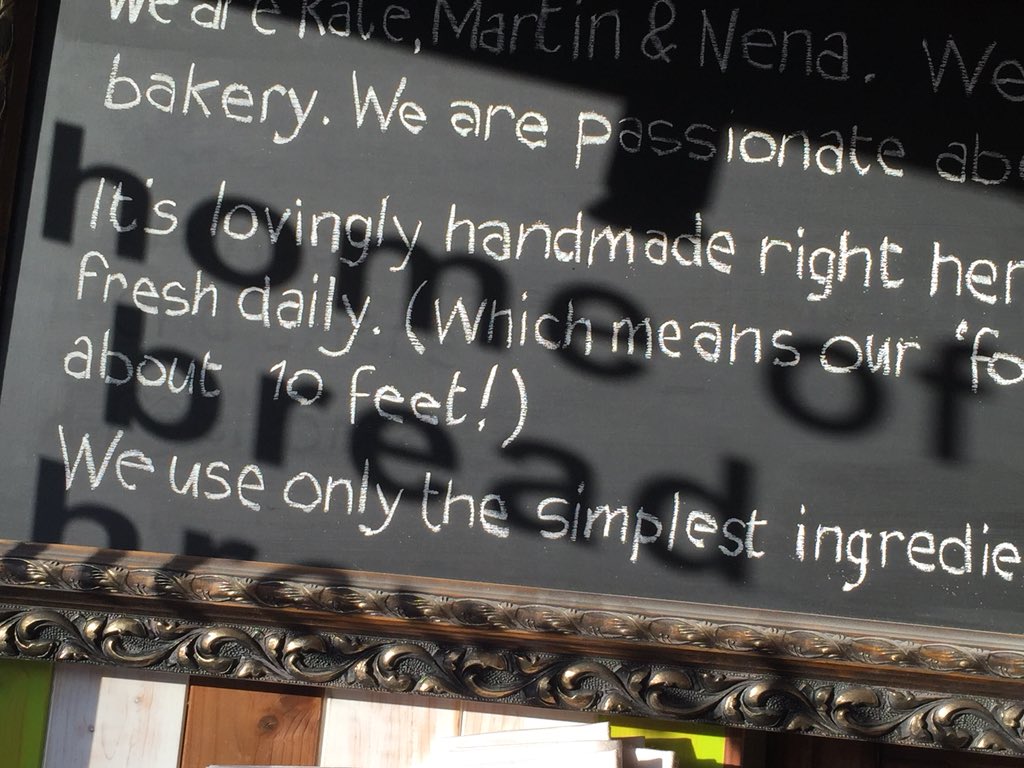 We are Kate, Martin & Nena. We
bakery. We are passionate abo
It's lovingly handmade right her
fresh daily. (Which means our 'fo
about 10 feet!)
We use only the simplest ingredie
home of
bread
bre